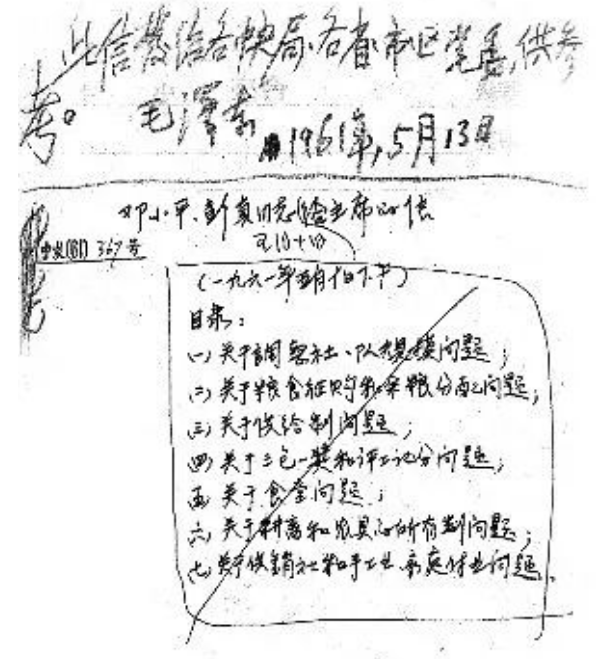 此信发给各中央局,各省、市、区党委,供参
考。 毛泽东
1961年,5月13日
邓小平、彭真同志给主席的信
中发(61) 367号
(一九六一年五月十日下午)
目录:
(一)关于調整社、队規模问题;
(二)关于粮食征购和余粮分配问题;
(三)关于供给制问题;
(四)关于三包一奖和评工记分问题;
(五)关于食堂问题;
(六)关于耕畜和农具的所有制问题;
(七)关于供銷社和手工业、家庭付业问题